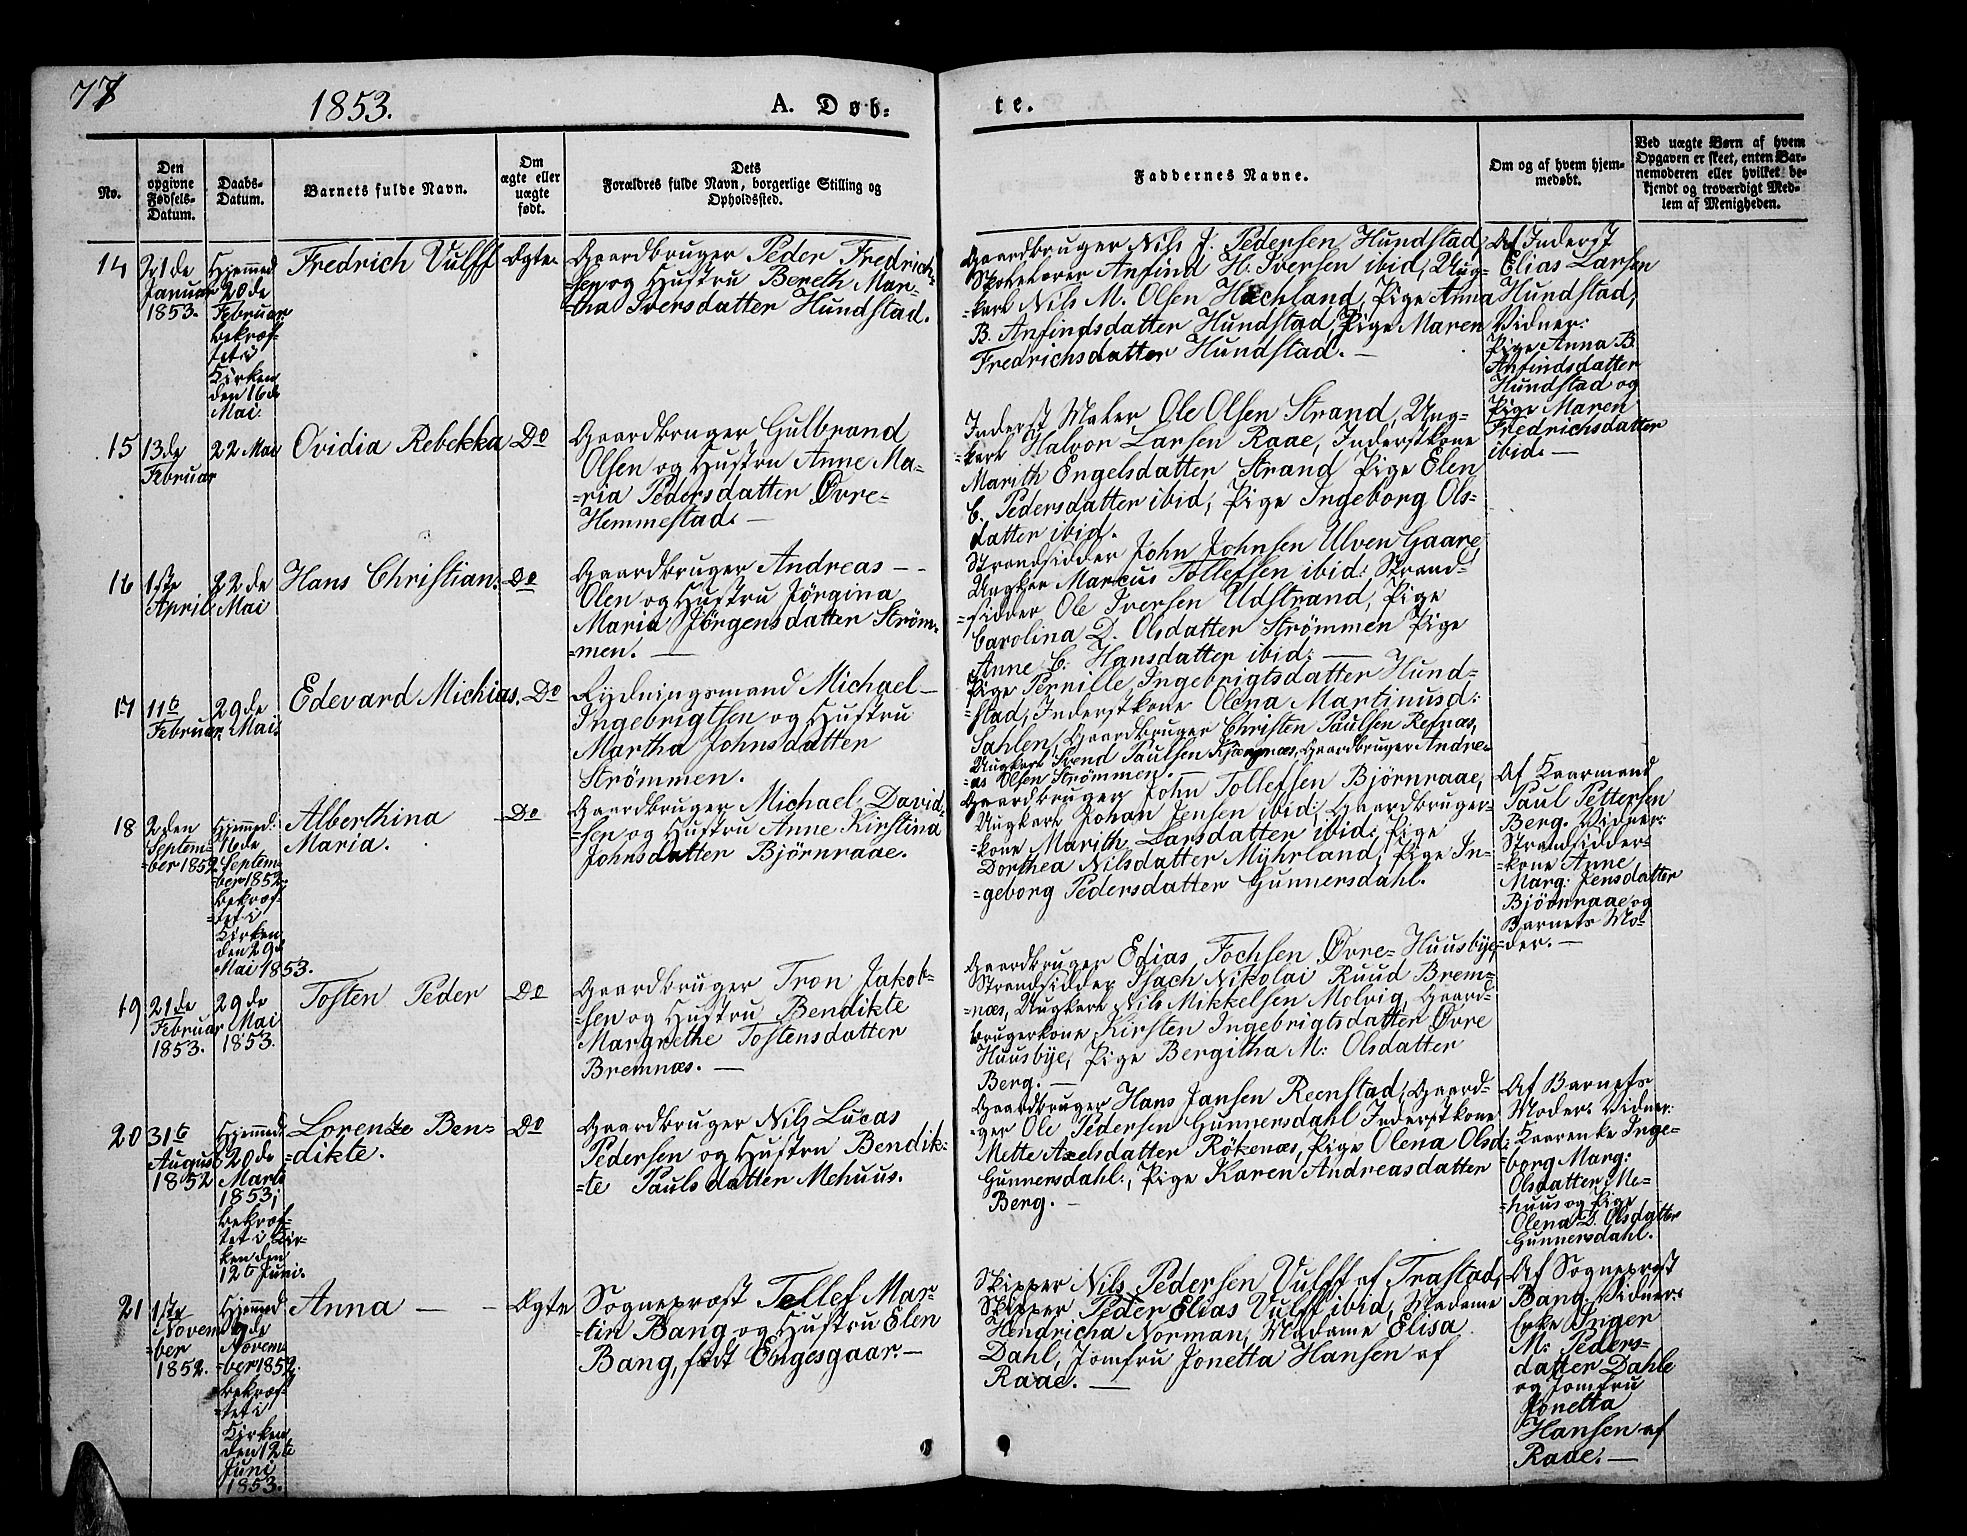 77
1853.
A. Døb-
te.
No.
Den
opgivne
Fødsels-
Datum.
Daabs-
Datum.
Barnets fulde Navn.
Om
ægte eller
uægte
født.
Dets
Forældres fulde Navn, borgerlige Stilling og
Opholdssted.
Faddernes Navne.
Om og af hvem hjem-
medøbt.
Ved uægte Børn af hvem
Opgaven er skeet, enten Bar-
nemoderen eller hvilket be-
kjendt og troværdigt Med-
lem af Menigheden.
14
21de
Januar
1853.
Hjemmed:
20de
Februar
bekræf-
tet i
Kirken
den 16de
Mai.
Fredrich Vulff
Ægte.
Gaardbruger Peder Fredrich-
=sen og Hustru Bereth Mar-
=tha Iversdatter Hundstad.
Gaardbruger Nils J. Pedersen Hundstad,
Skolelærer Anfind H. Iversen ibid, Ung-
=karl Nils M. Olsen Hachland, Pige Anna
B. Anfindsdatter Hundstad, Pige Maren
Fredrichsdatter Hundstad. —
Af Inderst
Elias Larsen
Hundstad,
Vidner:
Pige Anna B.
Anfindsdatter
Hundstad og
Pige Maren
Fredrichsdatter
ibid. —
15
13de
Februar
22 Mai
Ovidia Rebekka
Do
Gaardbruger Gulbrand
Olsen og Hustru Anne Ma-
=ria Pedersdatter Øvre-
Hemmestad. —
Inderst Maler Ole Olsen Strand, Ung-
=karl Halvor Larsen Raae, Inderstkone
Marith Engelsdatter Strand Pige Elen
C. Pedersdatter ibid, Pige Ingeborg Ols-
datter ibid.
16
1ste
April
22de
Mai
Hans Christian.
Do
Gaardbruger Andreas - -
Olen og Hustru Jørgina
Maria Jørgensdatter Strøm-
=men. —
Strandsidder John Johnsen Ulven Gaare,
Ungker Marcus Tollefsen ibid: Strand-
=sidder Ole Iversen Udstrand, Pige
Carolina D. Olsdatter Strømmen Pige
Anne C. Hansdatter ibid: —
17
11te
Februar.
29de
Mai
Edevard Michias.
Do
Rydningsmand Michael —
Ingebrigtsen og Hustru
Martha Johnsdatter
Strømmen.
Pige Pernille Ingebrigtsdatter Hund-
=stad, Inderstkone Olena Martinusd:
Sahlen, Gaardbruger Christen Paulsen Refnæs,
Ungkarl Svend Paulsen Kjøngsnæs, Gaardbruger Andre-
=as Olsen Strømmen. —
18
2den
Septem-
=ber 1852
Hjemmed:
16de
Septem-
=ber 1852.
bekræf-
=tet i
Kirken
den 29de
Mai 1853.
Alberthina
Maria.
Do
Gaardbruger Michael David-
=sen og Hustru Anne Kirstina
Johnsdatter Bjørnraae.
Gaardbruger John Tollefsen Bjørnraae,
Ungkarl Johan Jensen ibid; Gaardbruger-
=kone Marith Larsdatter ibid: Pige
Dorthea Nilsdatter Myhrland, Pige In-
=geborg Pedersdatter Gunnersdahl.
Af Kaarmand
Paul Pettersen
Berg. Vidner:
Strandsidder-
=kone Anne
Marg: Jensdatter
Bjørnraae og
Barnets Mo-
=der. —
19
21de
Februar
1853.
29de
Mai
1853.
Tosten Peder
Do
Gaardbruger Tron Jakob-
=sen og Hustru Bendikte
Margrethe Tostensdatter
Bremnæs. —
Gaardbruger Edias Fochsen Øvre-Huusbye,
Strandsidder Isach Nikolai Ruud Brem-
=næs, Ungkarl Nils Mikkelsen Molvig, Gaard-
brugerkone Kirsten Ingebrigtsdatter Øvre
Huusbye, Pige Bergitha M: Olsdatter
Berg. —
20
31te
August
1852
Hjemmed:
20de
Marts
1853,
bekræf-
tet i Kir-
ken den
12te Juni.
Lorentze Ben-
=dikte.
Do
Gaardbruger Nils Lucas
Pedersen og Hustru Bendik-
=te Paulsdatter Mehuus.
Gaardbruger Hans Jansen Reenstad, Gaard-
=ger Ole Pedersen Gunnersdahl Inderstkone
Mette Axelsdatter Røkenæs, Pige Olena Olsd:
Gunnersdahl:, Pige Karen Andreasdatter
Berg. —
Af Barnets
Moder. Vidner:
Kaarenke Inge-
=borg Marg:
Olsdatter Me-
=huus og Pige
Olena D. Olsdatter
Gunnersdahl.
21
1ste
Novem-
=ber
1852.
Hjemmed:
9de
Novem-
=ber 1852.
bekræf-
=tet i
Kirken
den 12te
Juni
1853.
Anna — -
Ægte
Sogneprost Tellef Mar-
=tin Bang og Hustru Elen
Bang, født Engesgaar. —
Skipper Nils Pedersen Vulff af Trastad,
Skipper Peder Elias Vulff ibid, Madame
Hendricha Norman, Madame Elisa
Dahl, Jomfru Jonetta Hansen af
Raae. —
Af Sogneprost
Bang. Vidner:
Enke Inger
M: Peders-
datter Dahle
og Jomfru
Jonetta
Hansen af
Raae. —